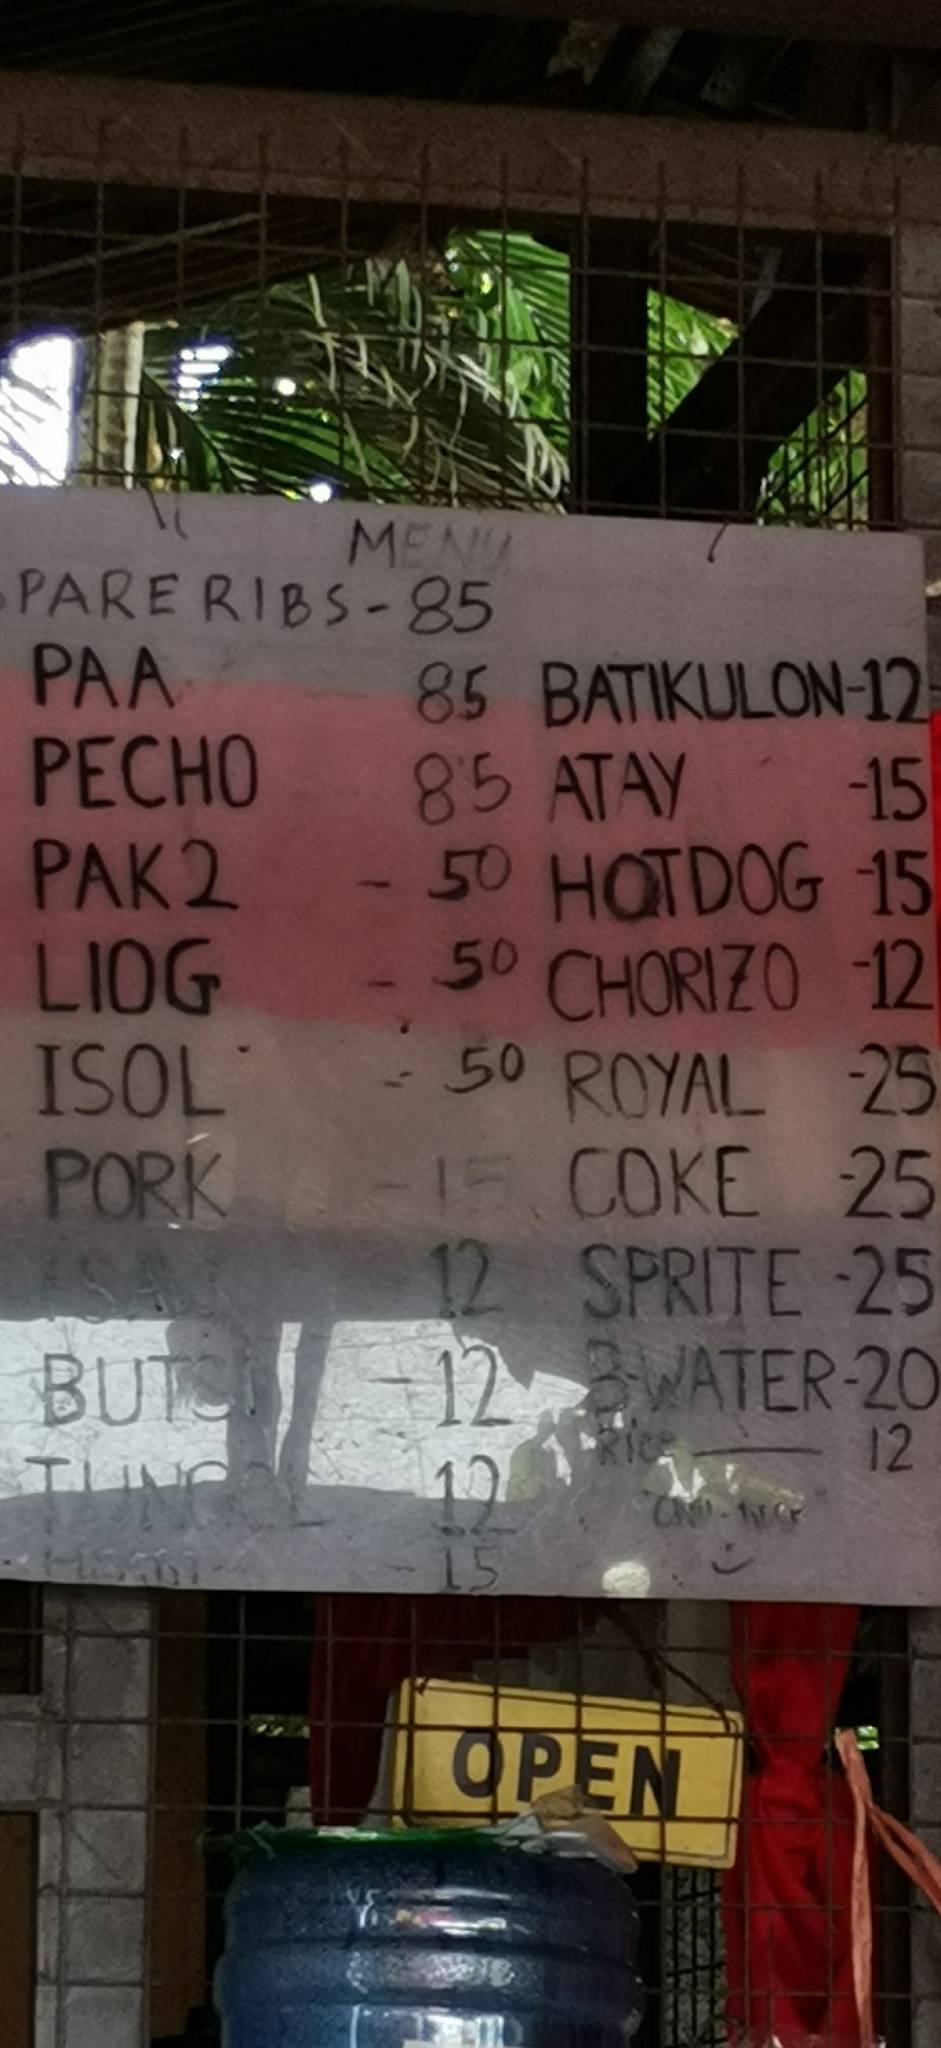 MENU
SPARERIBS - 85
PAA 85
PECHO 85
PAK2 - 50
LIOG - 50
ISOL - 50
PORK - 15
12
- 12
12
- 15
BATIKULON -12
ATAY -15
HOTDOG -15
CHORIZO -12
ROYAL -25
COKE -25
SPRITE -25
B-WATER -20
Rice 12
OPEN